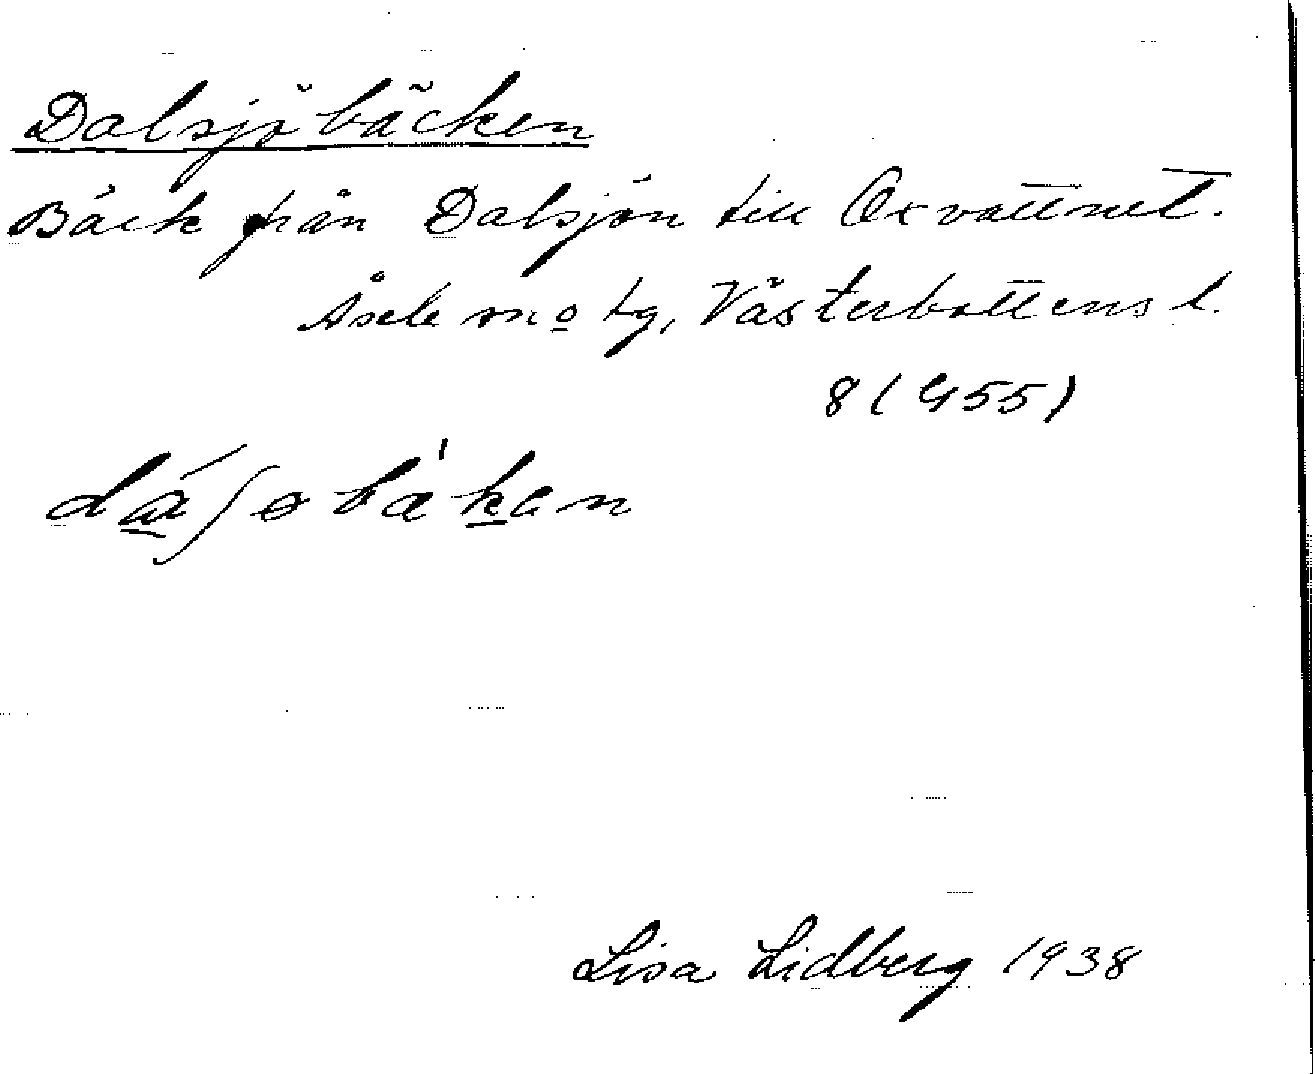 Dalsjöbäcken
Bäck från Dalsjön till Oxvattnet.
Åsele sn o tg, Västerbottens l.
8 (G55)
dáʃobä̀ken
Lisa Lidberg 1938